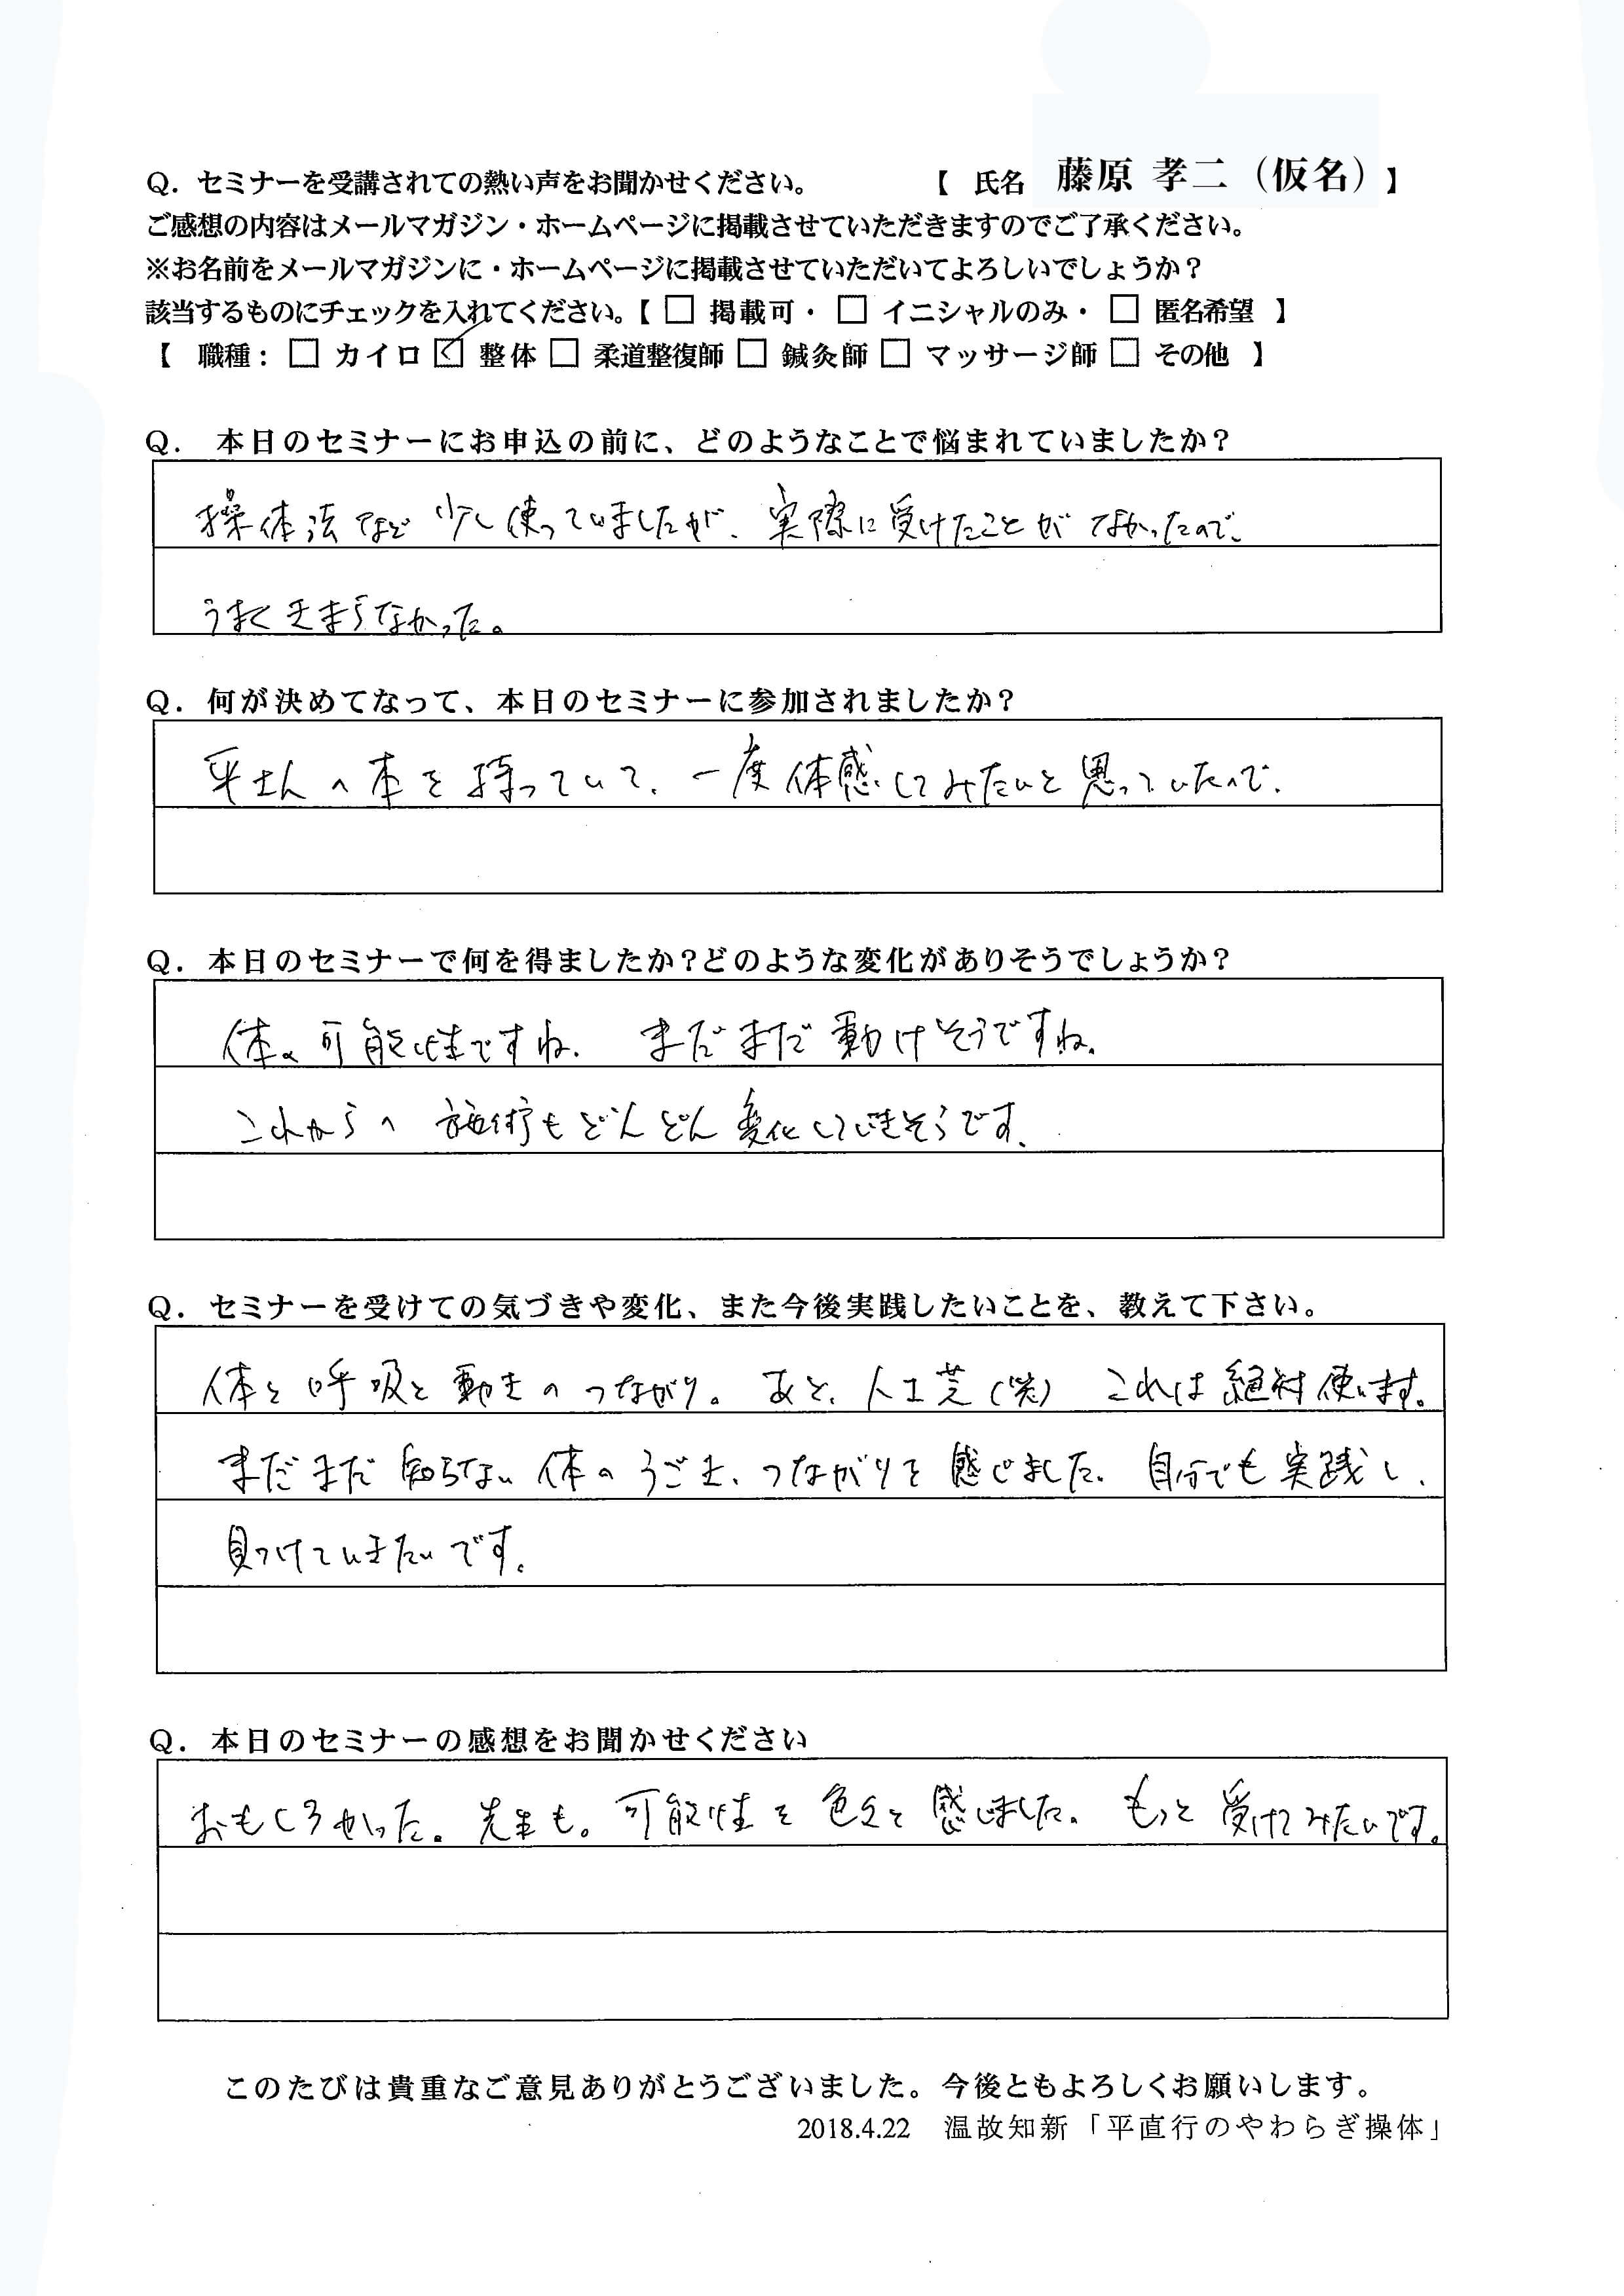 Q. セミナーを受講されての熱い声をお聞かせください。 【 氏名 藤原 孝二（仮名）】
ご感想の内容はメールマガジン・ホームページに掲載させていただきますのでご了承ください。
※お名前をメールマガジンに・ホームページに掲載させていただいてよろしいでしょうか？
該当するものにチェックを入れてください。【 □ 掲載可・ □ イニシャルのみ・ □ 匿名希望 】
【 職種： □ カイロ ☑ 整体 □ 柔道整復師 □ 鍼灸師 □ マッサージ師 □ その他 】
Q. 本日のセミナーにお申込の前に、どのようなことで悩まれていましたか？
操体法など少し使っていましたが、実際に受けたことがなかったので、
うまくきまらなかった。
Q. 何が決めてなって、本日のセミナーに参加されましたか？
平さんの本を持っていて、一度体感してみたいと思っていたので、
Q. 本日のセミナーで何を得ましたか？どのような変化がありそうでしょうか？
体の可能性ですね。 まだまだ動けそうですね。
これからの施術もどんどん変化していきそうです。
Q. セミナーを受けての気づきや変化、また今後実践したいことを、教えて下さい。
体と呼吸と動きのつながり。あと、人工芝（笑） これは絶対使います。
まだまだ知らない体のうごき、つながりを感じました。自分でも実践し、
見つけていきたいです。
Q. 本日のセミナーの感想をお聞かせください
おもしろかった。先生も。可能性を色々と感じました。もっと受けてみたいです。
このたびは貴重なご意見ありがとうございました。今後ともよろしくお願いします。
2018.4.22 温故知新「平直行のやわらぎ操体」